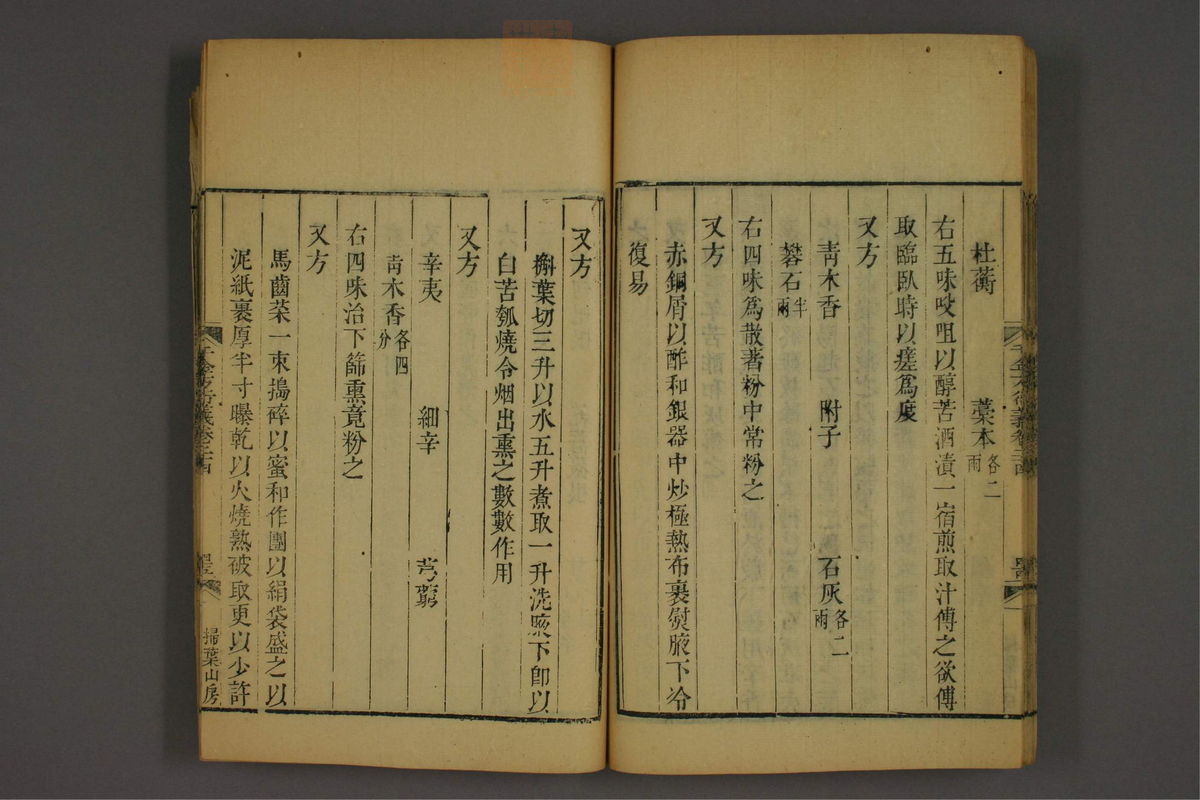 杜蘅 藁本各二兩
右五味㕮咀以醇苦酒漬一宿煎取汁傅之欲傅
取臨臥時以瘥爲度
又方
青木香 附子 石灰各二兩
礬石半兩
右四味爲散著粉中常粉之
又方
赤銅屑以酢和銀器中炒極熱布裹熨腋下冷
復易
又方
槲葉切三升以水五升煮取一升洗腋下卽以
白苦瓠燒令烟出熏之數數作用
又方
辛夷 細辛 芎藭
青木香各四分
右四味治下篩熏竟粉之
又方
馬齒菜一束搗碎以蜜和作團以絹袋盛之以
泥紙裹厚半寸曝乾以火燒熟破取更以少許
千金方衍義卷二十四
掃葉山房